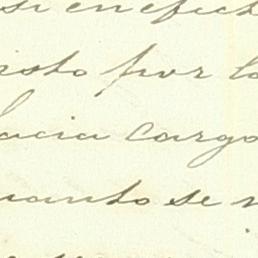 si en efect
isto por lo
hacia cargo
uanto se r